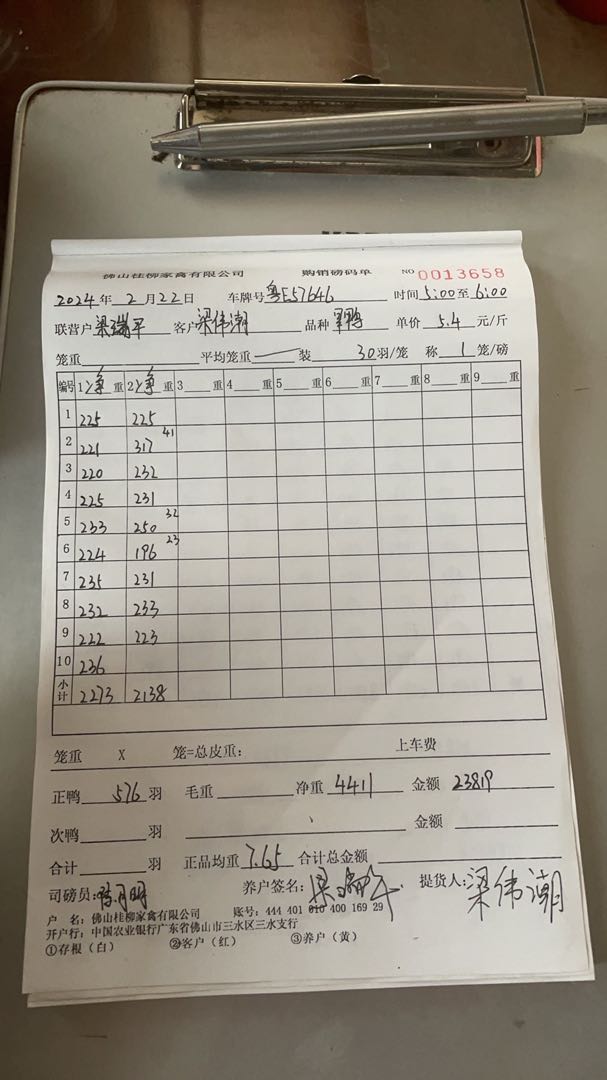 佛山桂柳家禽有限公司 购销磅码单 NO 0013658
2024年2月22日 车牌号粤E57646 时间5:00至6:00
联营户梁瑞平 客户梁伟潮 品种 鸭 单价 5.4 元/斤
笼重 平均笼重 — 装 30羽/笼 称 1 笼/磅
编号 1净重 2净重 3 重 4 重 5 重 6 重 7 重 8 重 9 重
1 225 225
2 221 317 41
3 220 232
4 225 231
5 233 250 32
6 224 196 23
7 235 231
8 232 233
9 222 223
10 236
小计 2273 2138
笼重 X 笼=总皮重: 上车费
正鸭 576 羽 毛重 净重 4411 金额 23819
次鸭 羽 金额
合计 羽 正品均重 7.65 合计总金额
司磅员: 月明 养户签名: 梁瑞平 提货人: 梁伟潮
户 名: 佛山桂柳家禽有限公司 账号: 444 401 010 400 169 29
开户行: 中国农业银行广东省佛山市三水区三水支行
①存根(白) ②客户(红) ③养户(黄)